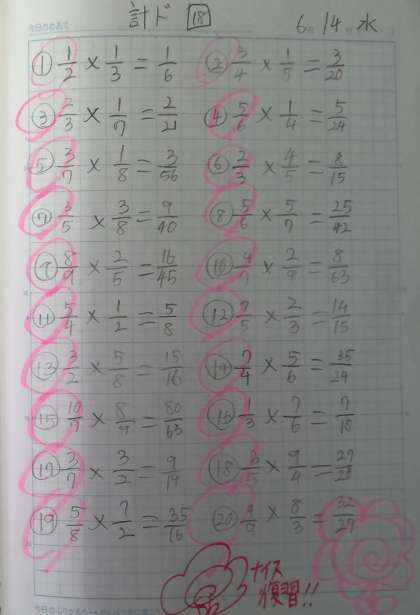 計ド 18 6月14日 水
① 1/2 × 1/3 = 1/6 ② 3/4 × 1/5 = 3/20
③ 2/3 × 1/7 = 2/21 ④ 5/6 × 1/4 = 5/24
⑤ 3/7 × 1/8 = 3/56 ⑥ 2/3 × 4/5 = 8/15
⑦ 3/5 × 3/8 = 9/40 ⑧ 5/6 × 5/7 = 25/42
⑨ 8/9 × 2/5 = 16/45 ⑩ 4/7 × 2/9 = 8/63
⑪ 5/4 × 1/2 = 5/8 ⑫ 7/5 × 2/3 = 14/15
⑬ 3/2 × 5/8 = 15/16 ⑭ 7/4 × 5/6 = 35/24
⑮ 10/7 × 8/9 = 80/63 ⑯ 1/3 × 7/6 = 7/18
⑰ 3/7 × 3/2 = 9/14 ⑱ 3/5 × 9/4 = 27/20
⑲ 5/8 × 7/2 = 35/16 ⑳ 4/9 × 8/3 = 32/27
ナイス
復習!!